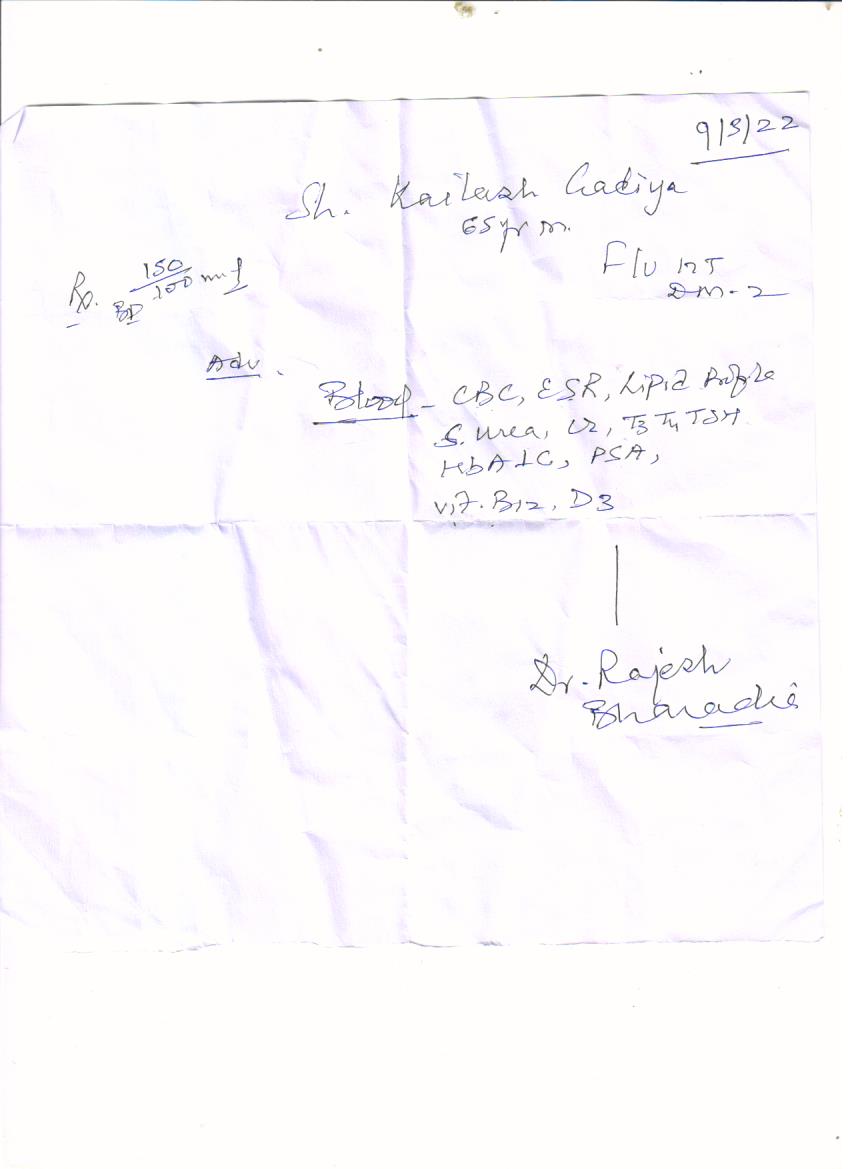 9/3/22
Sh. Kailash Gadiya
65 yr m.
F/U HT
DM-2
Rx. BP 150/100 mmHg
Adv.
Blood - CBC, ESR, Lipid Profile
S. Urea, Cr, T3 T4 TSH
HbA1C, PSA,
Vit. B12, D3
Dr. Rajesh
Bharadia